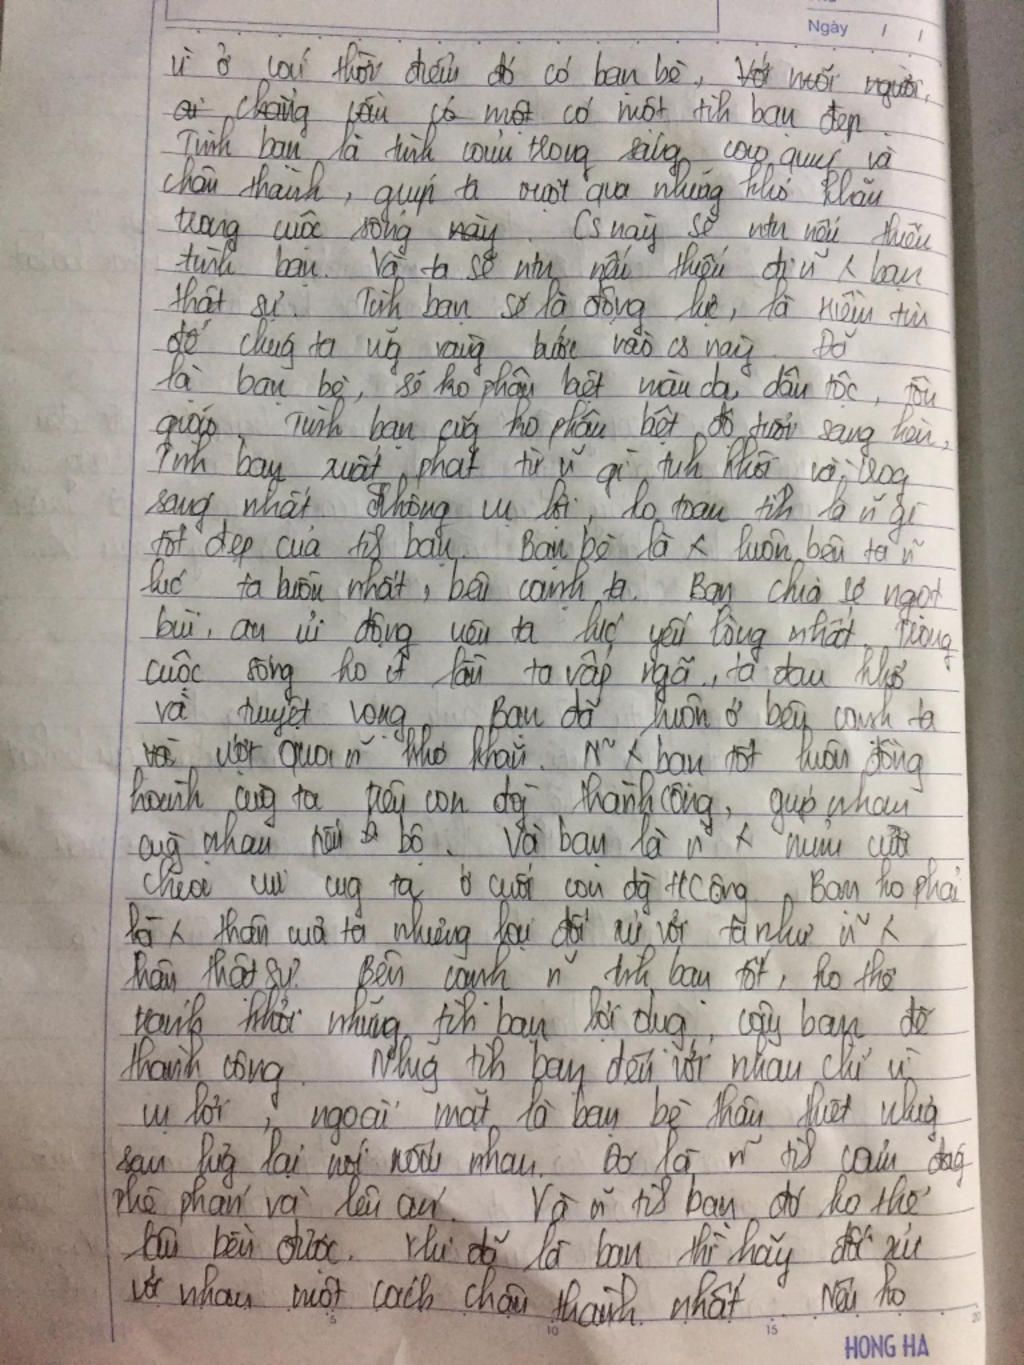 Ngày / /
vì ở cái thời điểm đó có bạn bè, Với mỗi người,
ai chẳng cần có một có một tìh bạn đẹp.
Tình bạn là tình cảm trong sáng, cao quý và
chân thành, giúp ta vượt qua những khó khăn
trong cuộc sống này. Cs này sẽ ntn nếu thiếu
tình bạn. Và ta sẽ ntn nếu thiếu đi n~ ⟨ bạn
thật sự. Tình bạn sẽ là động lực, là niềm tin
để chúg ta vữg vàng bước vào cs này. Đã
là bạn bè, sẽ ko phân biệt màu da, dân tộc, tôn
giáo. Tình bạn cũg ko phân biệt độ tuổi sang hèn,
Tình bạn xuất phát từ n~ gì tinh khôi và trog
sáng nhất. Không vụ lợi, ko toan tíh là n~ gì
tốt đẹp của tìh bạn. Bạn bè là ⟨ luôn bên ta n~
lúc ta buồn nhất, bên cạnh ta. Bạn chia sẻ ngọt
bùi, an ủi động viên ta lúc yếu lòng nhất. Trong
cuộc sống ko ít lần ta vấp ngã, ta đau khổ
và tuyệt vọng. Bạn đã luôn ở bên cạnh ta
và vượt qua n~ khó khăn. N~ ⟨ bạn tốt luôn đồng
hành cùg ta trên con đg thành công, giúp nhau
cùg nhau tiến bộ. Và bạn là n~ ⟨ mỉm cười
chia vui cùg ta ở cuối con đg tcông. Bạn ko phải
là ⟨ thân của ta nhưng lại đối xử với ta như n~ ⟨
thân thật sự. Bên cạnh n~ tìh bạn tốt, ko thể
tránh khỏi những tìh bạn lợi dụg, cậy bạn để
thành công. Nhữg tìh bạn đến với nhau chỉ vì
vụ lợi, ngoài mặt là bạn bè thân thiết nhưg
sau lưg lại nói xấu nhau. Đó là n~ tìh cảm đág
phê phán và lên án. Và n~ tìh bạn đó ko thể
lâu bền được. Khi đã là bạn thì hãy đối xử
với nhau một cách chân thành nhất. Nếu ko
5 10 15 20
HONG HA